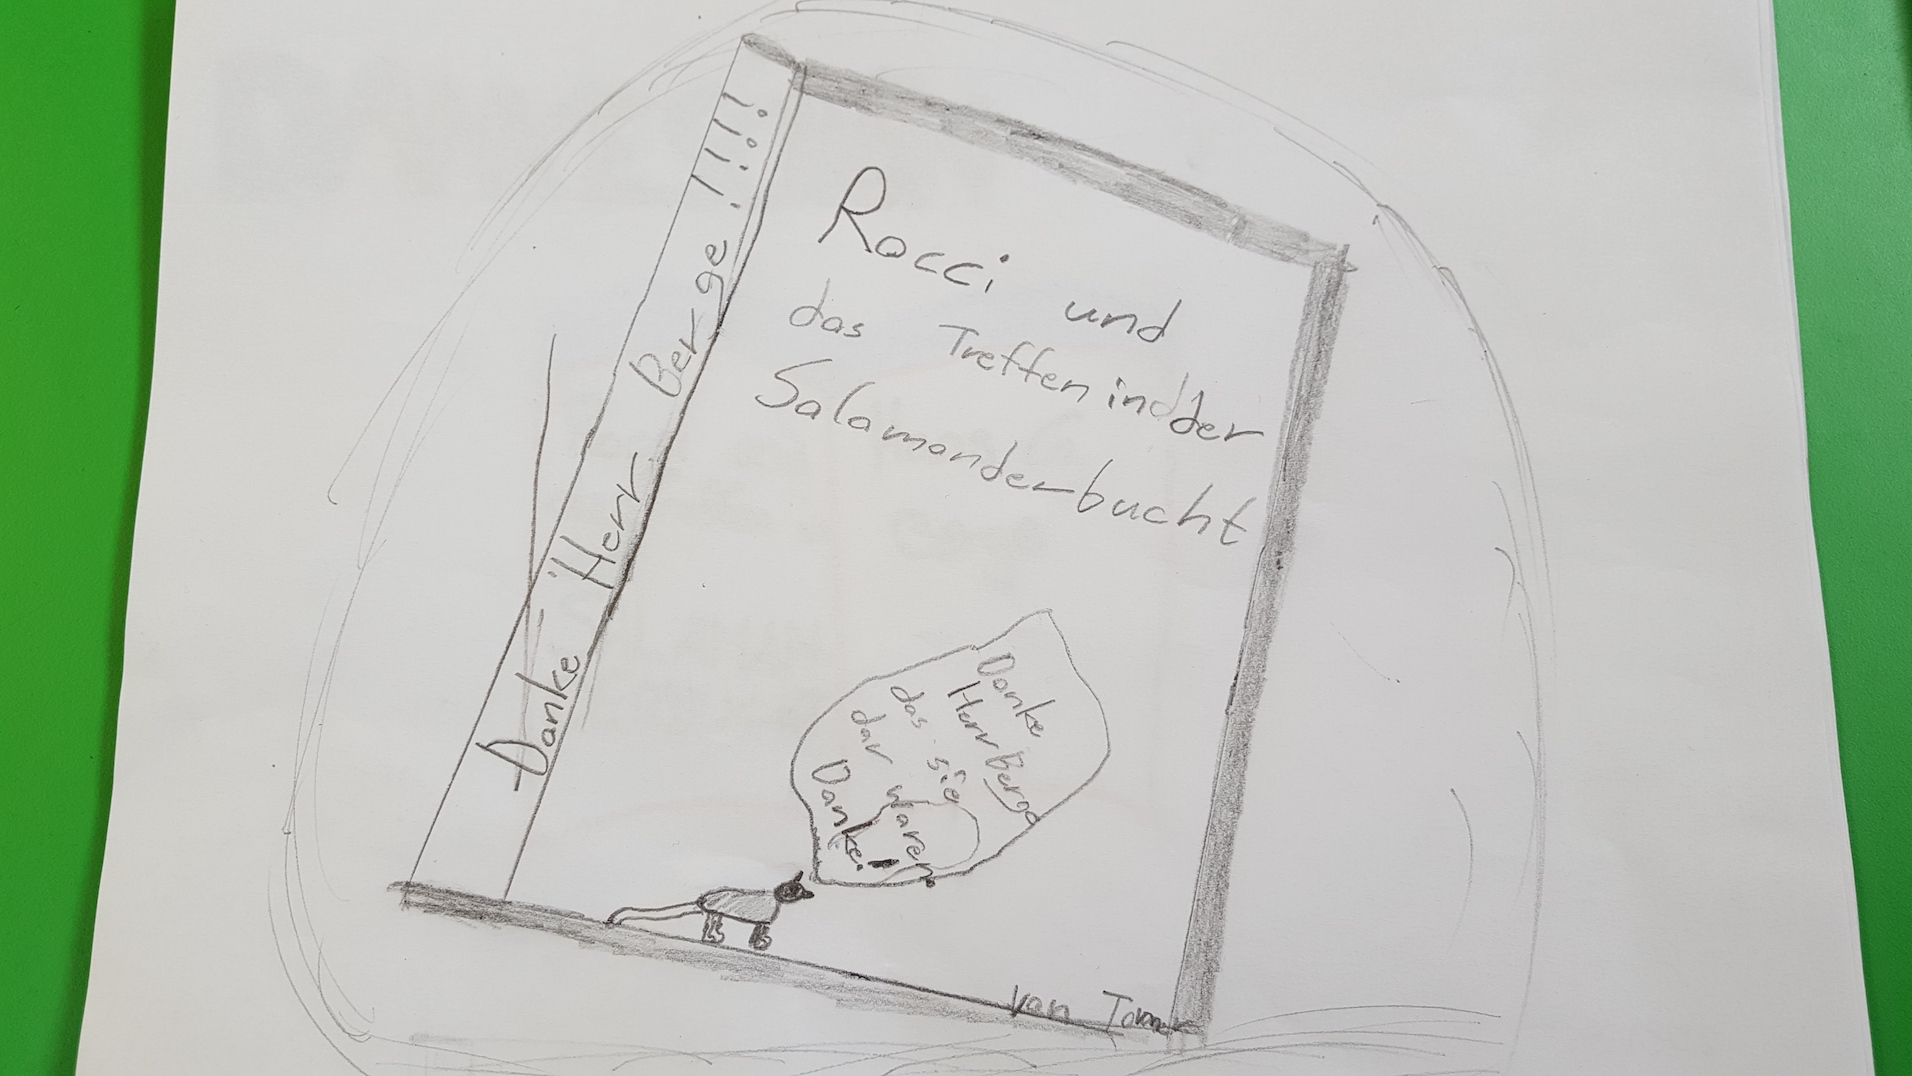 Danke Herr Berge!!!!
Rocci und
das Treffen in der
Salamanderbucht
Danke
Herr Berge
das sie
dar waren
Danke!
von Tamer